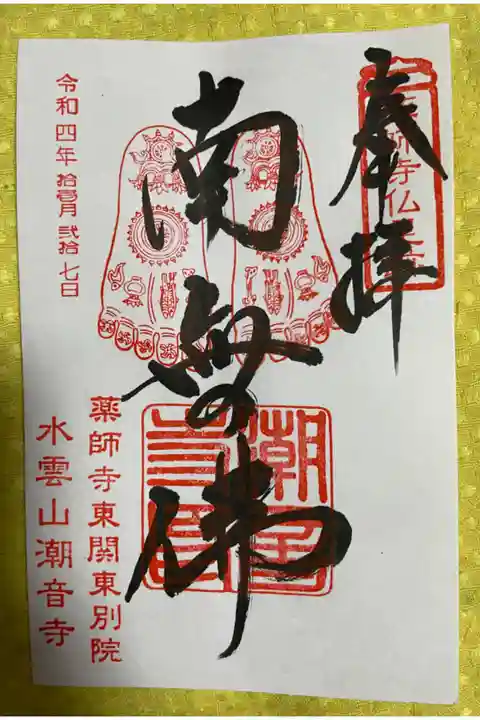 奉拝
薬師寺仏足石
南無佛
潮音寺
令和四年 拾壱月 弐拾七日
薬師寺東関東別院
水雲山潮音寺